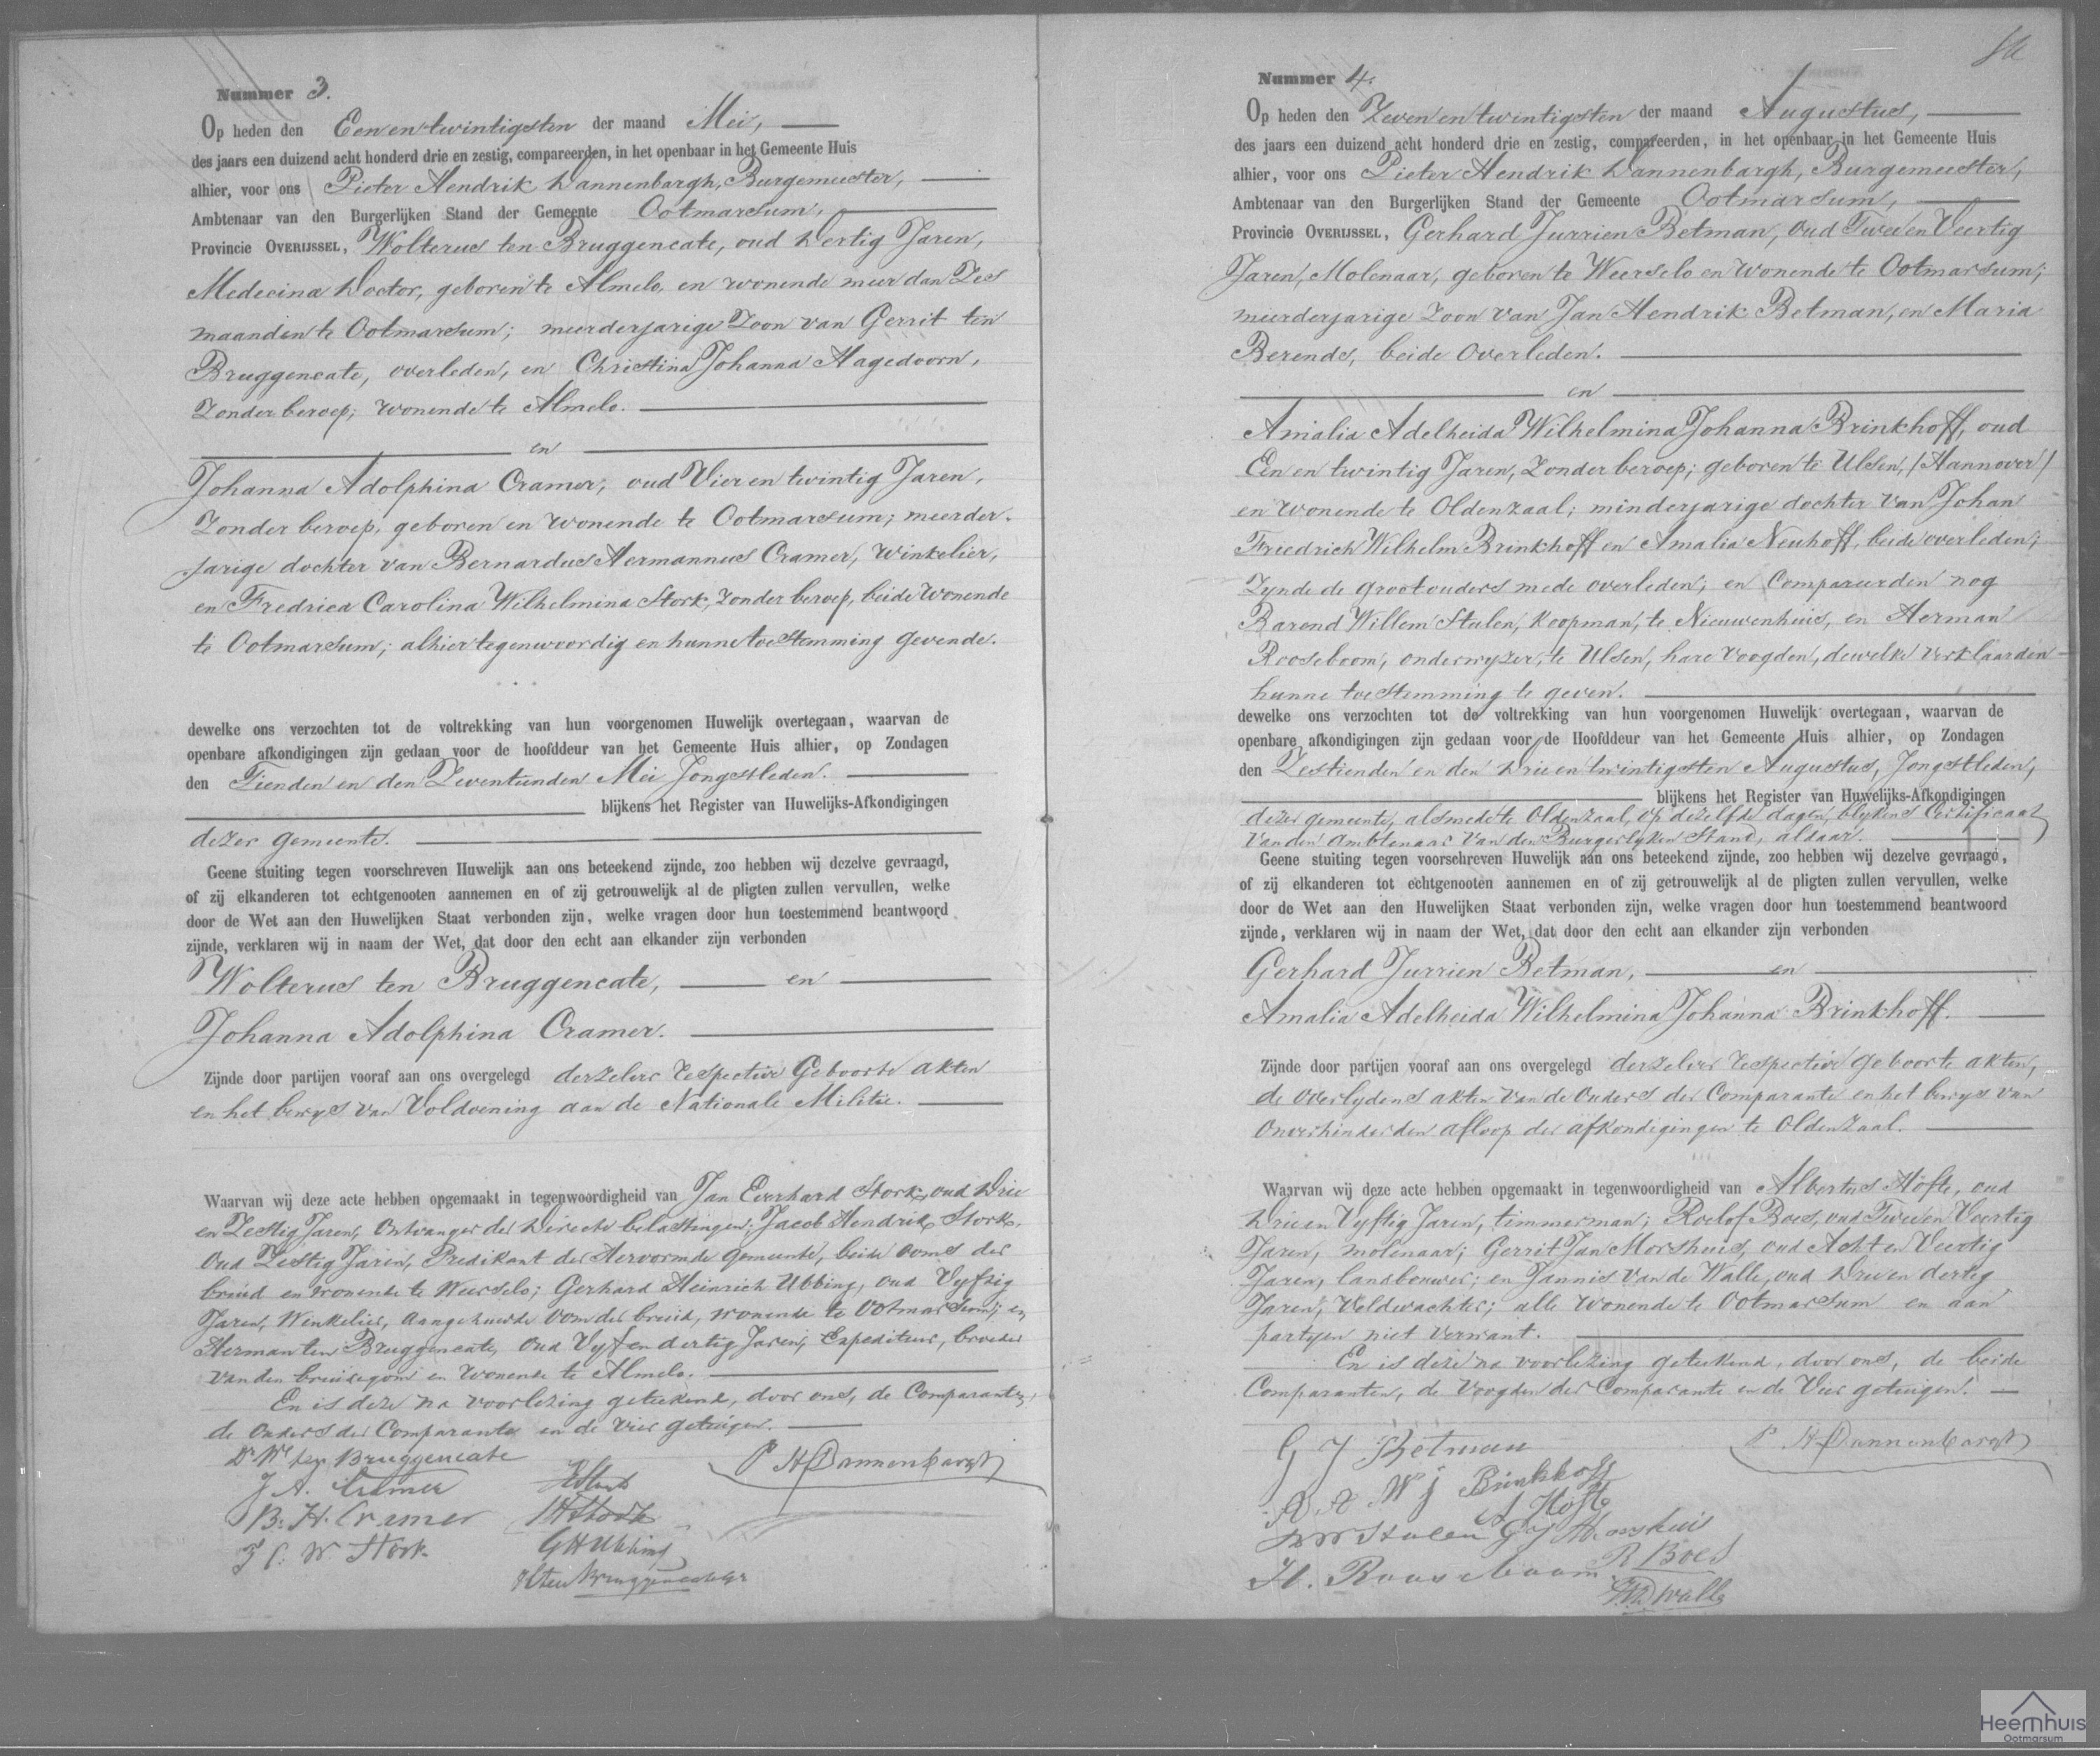 Nummer 3.
Op heden den Een en twintigsten der maand Mei,
des jaars een duizend acht honderd drie en zestig, compareerden, in het openbaar in het Gemeente Huis
alhier, voor ons Pieter Hendrik Dannenbargh, Burgemeester,
Ambtenaar van den Burgerlijken Stand der Gemeente Ootmarsum,
Provincie OVERIJSSEL, Wolterus ten Bruggencate, oud dertig Jaren,
Medecina Doctor, geboren te Almelo, en wonende meer dan Zes
maanden te Ootmarsum; meerderjarige Zoon van Gerrit ten
Bruggencate, overleden, en Christina Johanna Hagedoorn,
Zonder beroep, wonende te Almelo.
en
Johanna Adolphina Cramer, oud Vier en twintig Jaren,
Zonder beroep, geboren en wonende te Ootmarsum; meerder-
jarige dochter van Bernardus Hermannus Cramer, Winkelier,
en Fredrica Carolina Wilhelmina Stork, Zonder beroep, beide wonende
te Ootmarsum; alhier tegenwoordig en hunne toestemming gevende.
dewelke ons verzochten tot de voltrekking van hun voorgenomen Huwelijk overtegaan, waarvan de
openbare afkondigingen zijn gedaan voor de hoofddeur van het Gemeente Huis alhier, op Zondagen
den Tienden en den Zeventienden Mei Jongstleden.
blijkens het Register van Huwelijks-Afkondigingen
dezer gemeente.
Geene stuiting tegen voorschreven Huwelijk aan ons beteekend zijnde, zoo hebben wij dezelve gevraagd,
of zij elkanderen tot echtgenooten aannemen en of zij getrouwelijk al de pligten zullen vervullen, welke
door de Wet aan den Huwelijken Staat verbonden zijn, welke vragen door hun toestemmend beantwoord
zijnde, verklaren wij in naam der Wet, dat door den echt aan elkander zijn verbonden
Wolterus ten Bruggencate, en
Johanna Adolphina Cramer.
Zijnde door partijen vooraf aan ons overgelegd derzelver respective Geboorte akten
en het bewys van Voldoening aan de Nationale Militie.
Waarvan wij deze acte hebben opgemaakt in tegenwoordigheid van Jan Everhard Stork, oud Drie
en Zestig Jaren, Ontvanger der Directe belastingen; Jacob Hendrik Stork,
oud Zestig Jaren, Predikant der Hervormde gemeente, beide ooms der
bruid en wonende te Weerselo; Gerhard Heinrich Ubbing, oud Vyftig
Jaren, Winkelier, aangehuwde oom der bruid, wonende te Ootmarsum; en
Herman ten Bruggencate, oud Vyf en dertig Jaren, Expediteur, broeder
van den bruidegom en wonende te Almelo.
En is deze na voorlezing geteekend, door ons, de Comparanten,
de Ouders der Comparante en de vier getuigen.
Dr. W ten Bruggencate
P H Dannenbargh
J. A. Cramer
JEStork
B. H. Cramer
JHStork
F C. W. Stork.
GHUbbing
HtenBruggencate
Nummer 4.
Op heden den Zeven en twintigsten der maand Augustus,
des jaars een duizend acht honderd drie en zestig, compareerden, in het openbaar in het Gemeente Huis
alhier, voor ons Pieter Hendrik Dannenbargh, Burgemeester,
Ambtenaar van den Burgerlijken Stand der Gemeente Ootmarsum,
Provincie OVERIJSSEL, Gerhard Jurrien Betman, oud Twee en Veertig
Jaren, Molenaar, geboren te Weerselo en wonende te Ootmarsum;
meerderjarige Zoon van Jan Hendrik Betman, en Maria
Berends, beide overleden.
en
Amalia Adelheida Wilhelmina Johanna Brinkhoff, oud
Een en twintig Jaren, Zonder beroep; geboren te Ulsen, /Hannover/
en wonende te Oldenzaal; minderjarige dochter van Johan
Friedrich Wilhelm Brinkhoff en Amalia Neuhoff, beide overleden;
Zynde de grootouders mede overleden; en Compareerden nog
Barend Willem Stulen, Koopman, te Nieuwenhuis, en Herman
Rooseboom, onderwyzer, te Ulsen, hare voogden, dewelke verklaarden
hunne toestemming te geven.
dewelke ons verzochten tot de voltrekking van hun voorgenomen Huwelijk overtegaan, waarvan de
openbare afkondigingen zijn gedaan voor de Hoofddeur van het Gemeente Huis alhier, op Zondagen
den Zestienden en den drie en twintigsten Augustus, Jongstleden,
blijkens het Register van Huwelijks-Afkondigingen
dezer gemeente, alsmede te Oldenzaal, op dezelfde dagen, blykens Certificaat
van den Ambtenaar van den Burgerlyken Stand, aldaar.
Geene stuiting tegen voorschreven Huwelijk aan ons beteekend zijnde, zoo hebben wij dezelve gevraagd,
of zij elkanderen tot echtgenooten aannemen en of zij getrouwelijk al de pligten zullen vervullen, welke
door de Wet aan den Huwelijken Staat verbonden zijn, welke vragen door hun toestemmend beantwoord
zijnde, verklaren wij in naam der Wet, dat door den echt aan elkander zijn verbonden
Gerhard Jurrien Betman, en
Amalia Adelheida Wilhelmina Johanna Brinkhoff.
Zijnde door partijen vooraf aan ons overgelegd derzelver respective geboorte akten,
de overlydens akten van de Ouders der Comparante en het bewys van
Onverhinderden afloop der afkondigingen te Oldenzaal.
Waarvan wij deze acte hebben opgemaakt in tegenwoordigheid van Albertus Höfte, oud
Drie en Vyftig Jaren, timmerman; Roelof Boes, oud Twee en Veertig
Jaren, molenaar; Gerrit Jan Morshuis, oud Acht en Veertig
Jaren, landbouwer; en Jannis van de Walle, oud Drie en dertig
Jaren, Veldwachter; alle wonende te Ootmarsum en aan
partyen niet verwant.
En is deze na voorlezing geteekend, door ons, de beide
Comparanten, de Voogden der Comparante en de Vier getuigen.
G J Betman
P H Dannenbargh
A A W J Brinkhoff
A Höfte
BW Stulen
GJ Morshuis
H. Rooseboom
R Boes
JVDWalle
Heemhuis
Ootmarsum